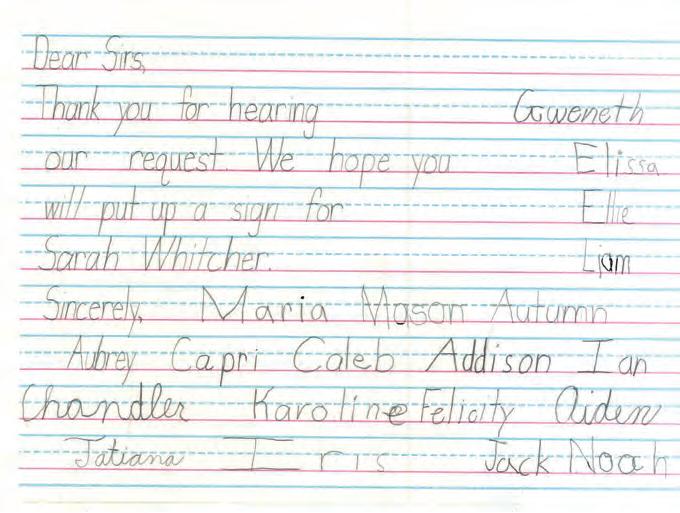 Dear Sirs,
Thank you for hearing Gweneth
our request. We hope you Elissa
will put up a sign for Ellie
Sarah Whitcher. Liam
Sincerely, Maria Mason Autumn
Aubrey Capri Caleb Addison Ian
Chandler Karoline Felicity Aiden
Tatiana Iris Jack Noah